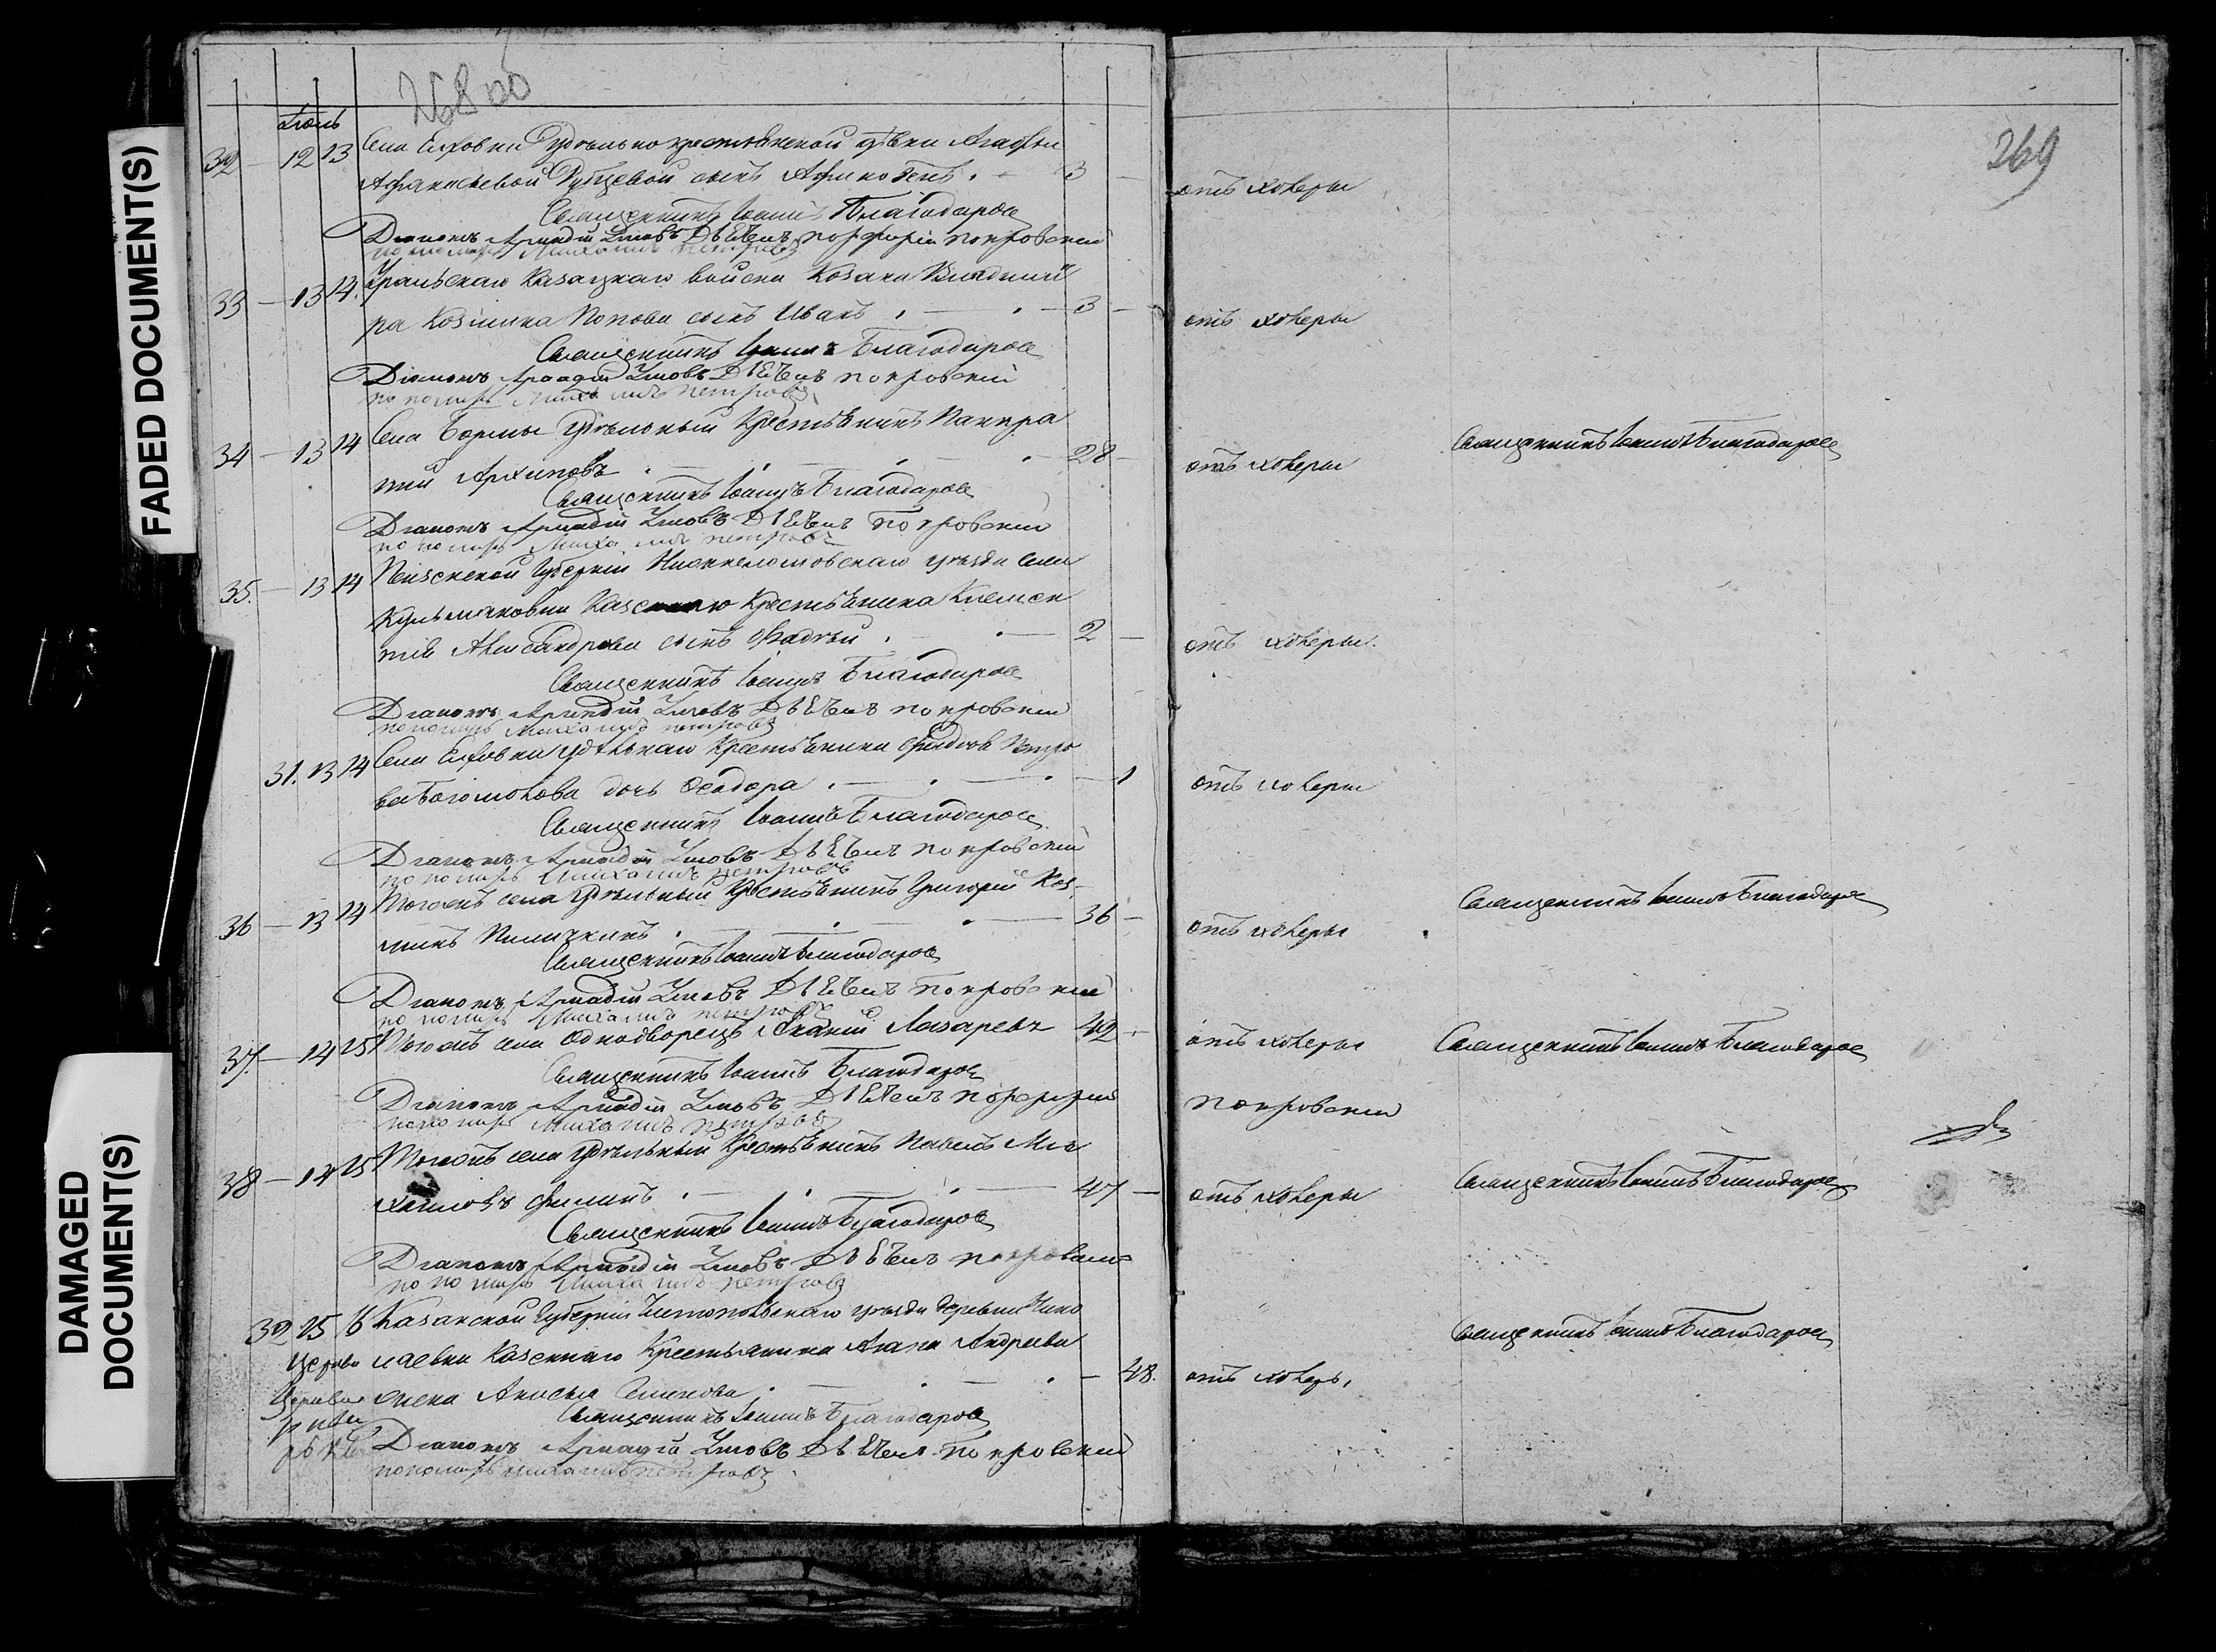 FADED DOCUMENT(S)
DAMAGED DOCUMENT(S)
268 об
269
Июль
32 — 12 13 Села Елховки Удѣльнокрестьянской дѣвки Агафьи
Афанасьевой Рубцевой сынъ 3 — отъ холеры
Священникъ Іоаннъ Благодаров
Діаконъ Аркадій Умовъ Дьячекъ порфирій покровскій
пономарь Михаилъ петровъ
33 — 13 14. Уральскаго Казацкаго войска Козака Владими
ра Козмина Попова сынъ Иванъ. — 3 — отъ холеры
Священникъ Іоаннъ Благодаров
Діаконъ Аркадій Умовъ Дьячекъ покровскій
пономарь Михаилъ петровъ
34 — 13 14 Села Бормы Удѣльный Крестьянинъ Панкра
тій Архиповъ. — 28 — отъ холеры Священникъ Іоаннъ Благодаров
Священникъ Іоаннъ Благодаров
Діаконъ Аркадій Умовъ Дьячекъ покровскій
пономарь Михаилъ петровъ
35. — 13 14 Пензенской Губерніи Нижнеломовскаго уѣзда села
Казеннаго Крестьянина Клемен
тія Александрова сынъ Фадѣй. — 2 — отъ холеры.
Священникъ Іоаннъ Благодаров
Діаконъ Аркадій Умовъ Дьячекъ покровскій
пономарь Михаилъ петровъ
31. 13 14 Села Елховки удѣльнаго Крестьянина Петро
ва Богомолова дочь Феадора. — 1 отъ холеры
Священникъ Іоаннъ Благодаров
Діаконъ Аркадій Умовъ Дьячекъ покровскій
пономарь Михаилъ петровъ
36 — 13 14 Тогожъ села Удѣльный Крестьянинъ Григорій Коз-
минъ. — 36 — отъ холеры Священникъ Іоаннъ Благодаров
Священникъ Іоаннъ Благодаров
Діаконъ Аркадій Умовъ Дьячекъ покровскій
пономарь Михаилъ петровъ
37. — 14 15 Тогожъ села Однодворецъ Лазаревъ 42 — отъ холеры Священникъ Іоаннъ Благодаров
Священникъ Іоаннъ Благодаров
Діаконъ Аркадій Умовъ Дьячекъ порфирій покровскій
пономарь Михаилъ петровъ
38 — 14 15 Тогожъ села Удѣльный Крестьянинъ Павелъ Ми
хайловъ Филинъ. — 47 — отъ холеры Священникъ Іоаннъ Благодаров
Священникъ Іоаннъ Благодаров
Діаконъ Аркадій Умовъ Дьячекъ покровскій
пономарь Михаилъ петровъ
39 15 16 Казанской Губерніи Чистопольскаго уѣзда деревни Нико
лаевки Казеннаго Крестьянина Агапа Андреева
жена Анисья Семенова. — 48. отъ холеры Священникъ Іоаннъ Благодаров
Священникъ Іоаннъ Благодаров
Діаконъ Аркадій Умовъ Дьячекъ покровскій
пономарь михаилъ петровъ